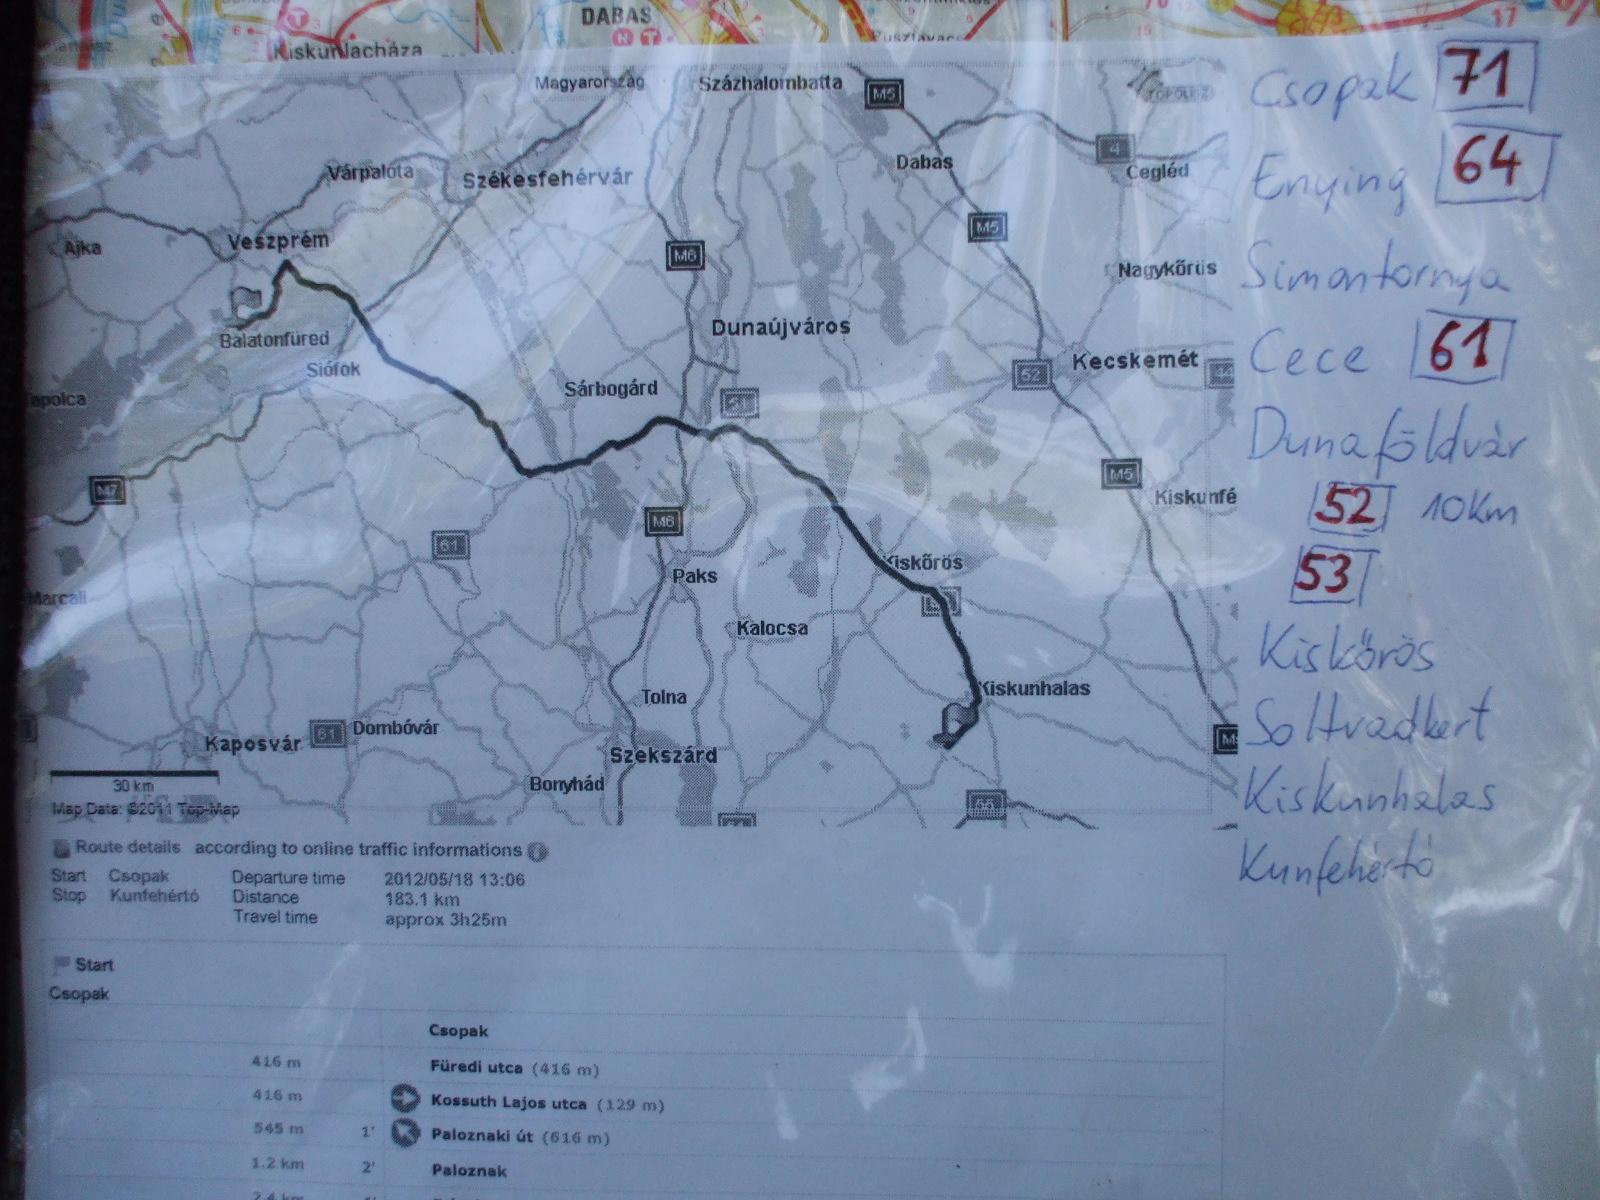 DABAS
Kiskunlacháza
Magyarország
Százhalombatta
M5
Dabas
4
Cegléd
Várpalota
Székesfehérvár
Ajka
Veszprém
M6
M5
Nagykőrös
Balatonfüred
Siófok
Dunaújváros
Sárbogárd
52
Kecskemét
44
apolca
51
M7
M5
Kiskunfé
61
M6
Kiskőrös
Paks
Marcali
Kalocsa
Tolna
Kiskunhalas
Kaposvár
61
Dombóvár
Szekszárd
Bonyhád
55
30 km
Map Data: ©2011 Top-Map
Csopak 71
Enying 64
Simontornya
Cece 61
Dunaföldvár
52 10km
53
Kiskőrös
Soltvadkert
Kiskunhalas
Kunfehértó
Route details according to online traffic informations
Start Csopak Departure time 2012/05/18 13:06
Stop Kunfehértó Distance 183.1 km
Travel time approx 3h25m
Start
Csopak
Csopak
416 m Füredi utca (416 m)
416 m Kossuth Lajos utca (129 m)
545 m 1' Paloznaki út (616 m)
1.2 km 2' Paloznak